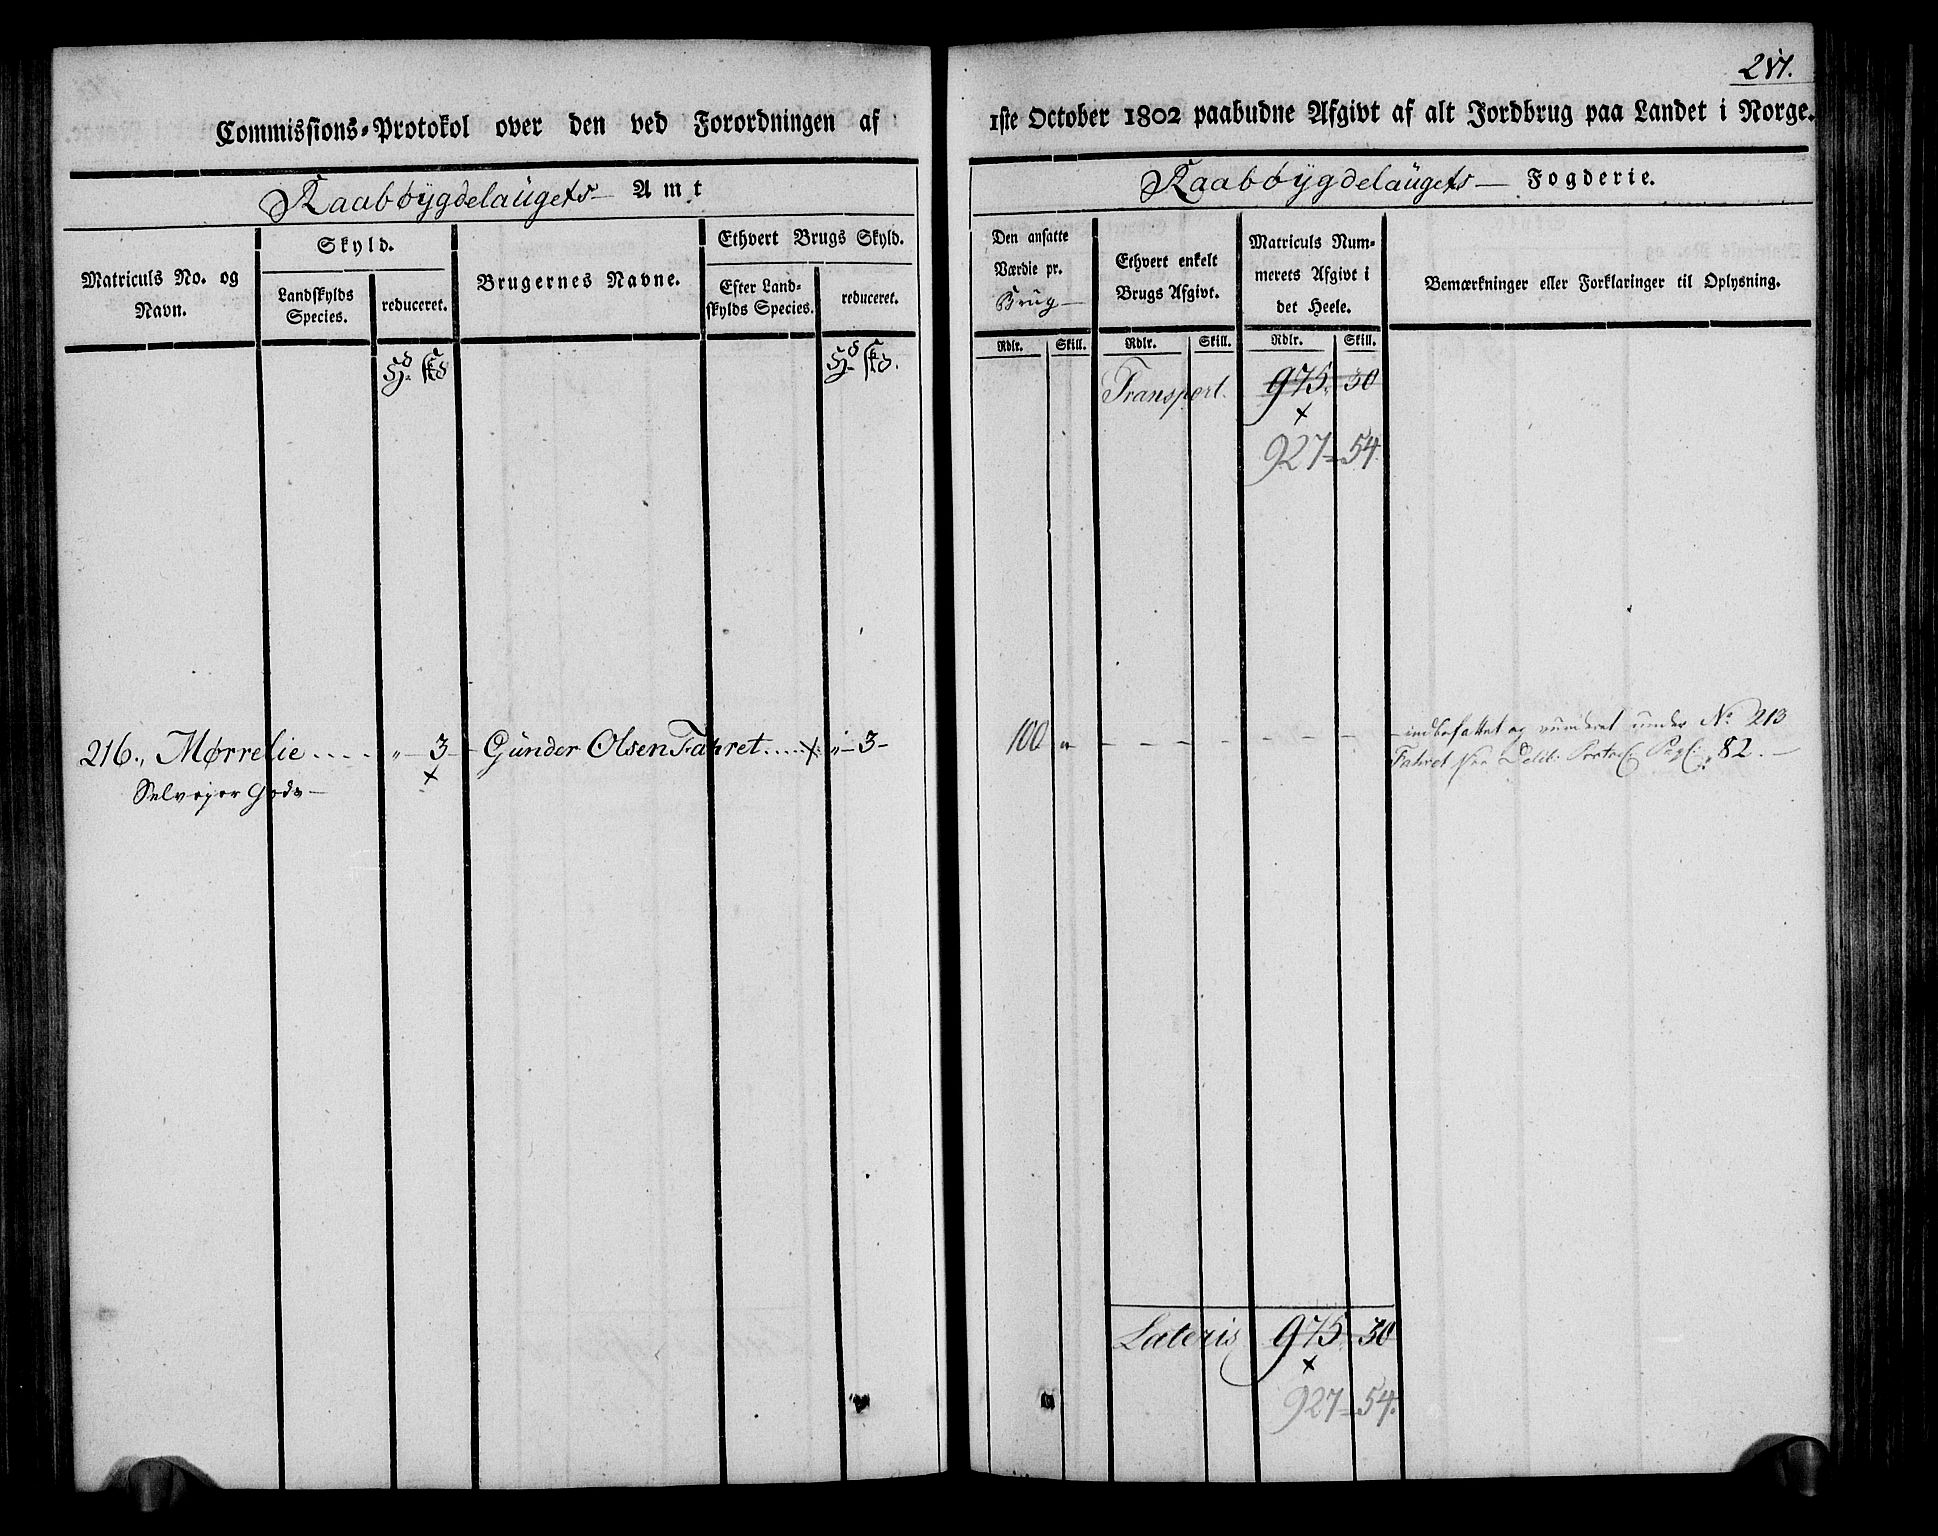 217.
Commissions-Protokol over den ved Forordningen af 1ste October 1802 paabudne Afgivt af alt Jordbrug paa Landet i Norge.
Raabøygdelaugets Amt
Raabøygdelaugets Fogderie.
Matriculs No. og Navn.
Skyld.
Landskylds Species.
reduceret.
Brugernes Navne.
Ethvert Brugs Skyld.
Efter Landskylds Species.
reduceret.
Den ansatte Værdie pr. Brug
Ethvert enkelt Brugs Afgivt.
Matriculs Nummerets Afgivt i det Heele.
Bemærkninger eller Forklaringer til Oplysning.
Rdlr. Skill. Rdlr. Skill. Rdlr. Skill.
Hd skd
Hd skd.
Transport. 975. 30
927 = 54.
216., Mørrelie .... „ 3 Gunder Olsen Fahret ..... „ 3 100 „ indbefattet og vurderet under No 213
Selveier Gods
Fahret 82.
Lateris 975. 30
927 = 54.